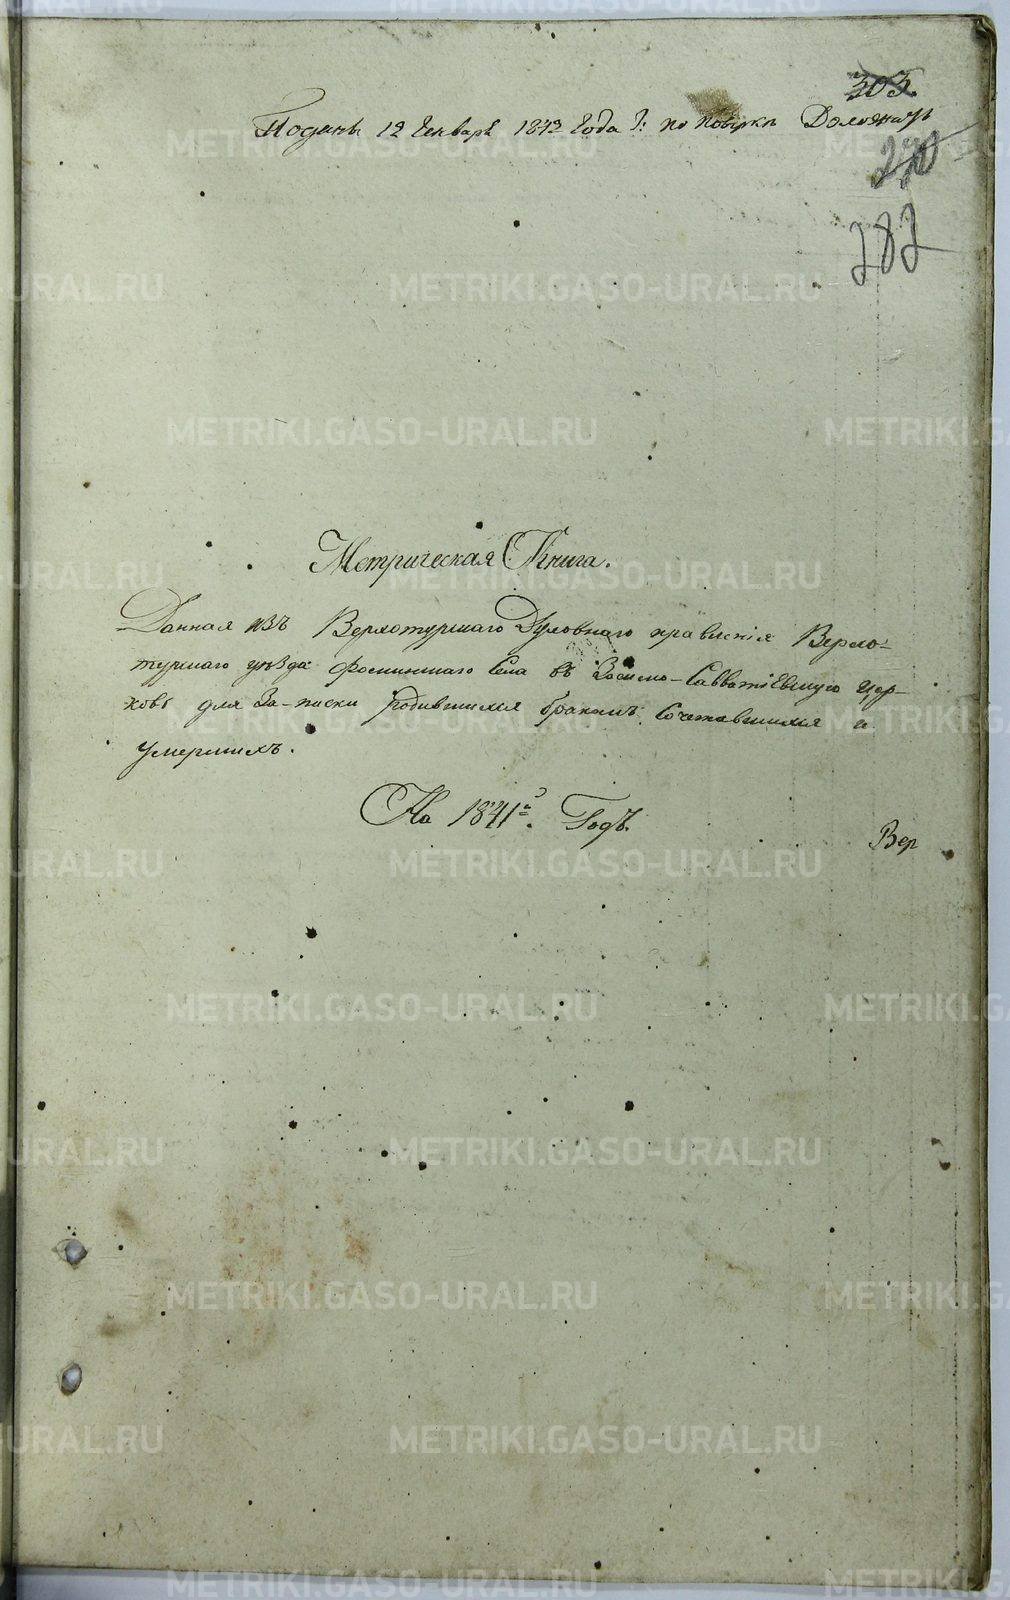 303.
Поданы 12 Генваря 1842 года
270
282
Метрическая Книга.
Данная изъ Верхотурскаго Духовнаго правленія Верхо-
турскаго уѣзда Фоминскаго Села въ Зосимо-Савватіевскую цер-
ковь для За-писки родившихся бракомъ Сочетавшихся и
умершихъ.
На 1841й Годъ.
Вер
METRIKI.GASO-URAL.RU